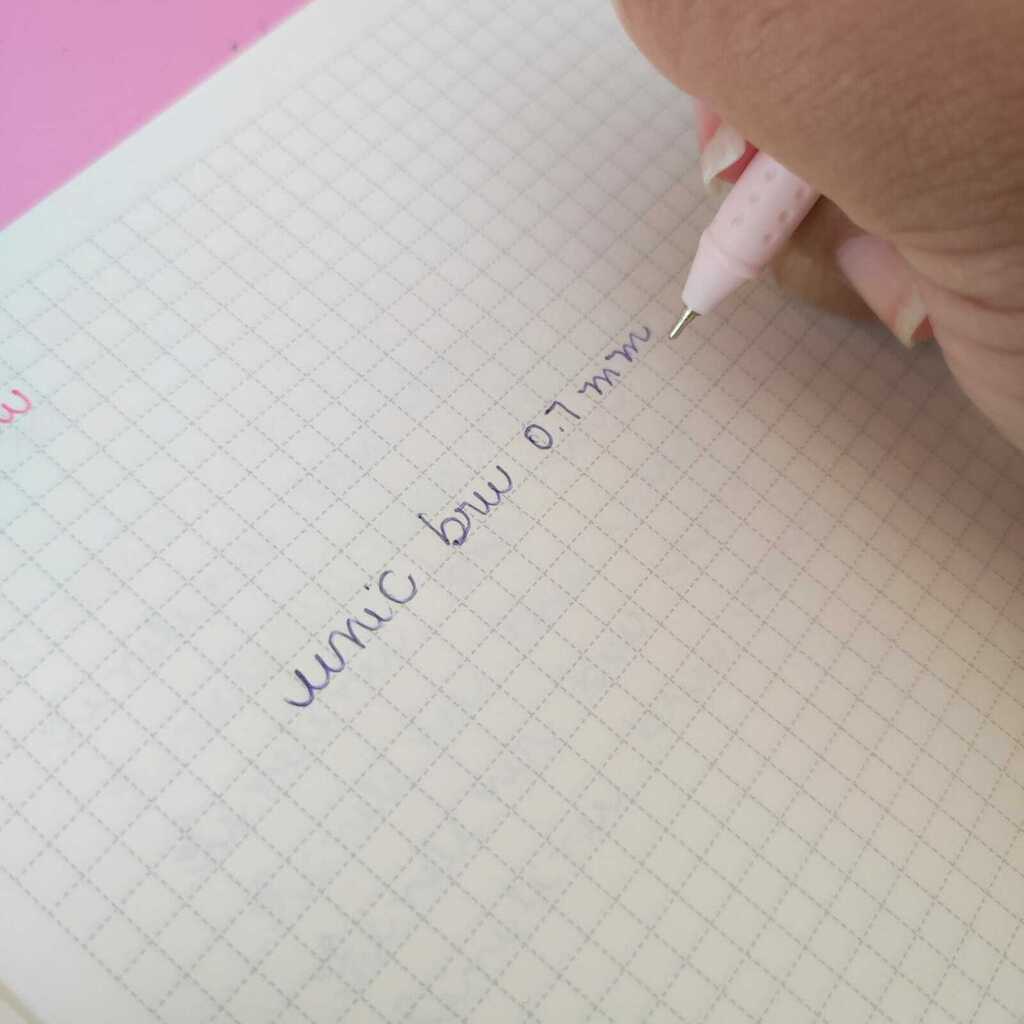 unic brw 0.7 mm